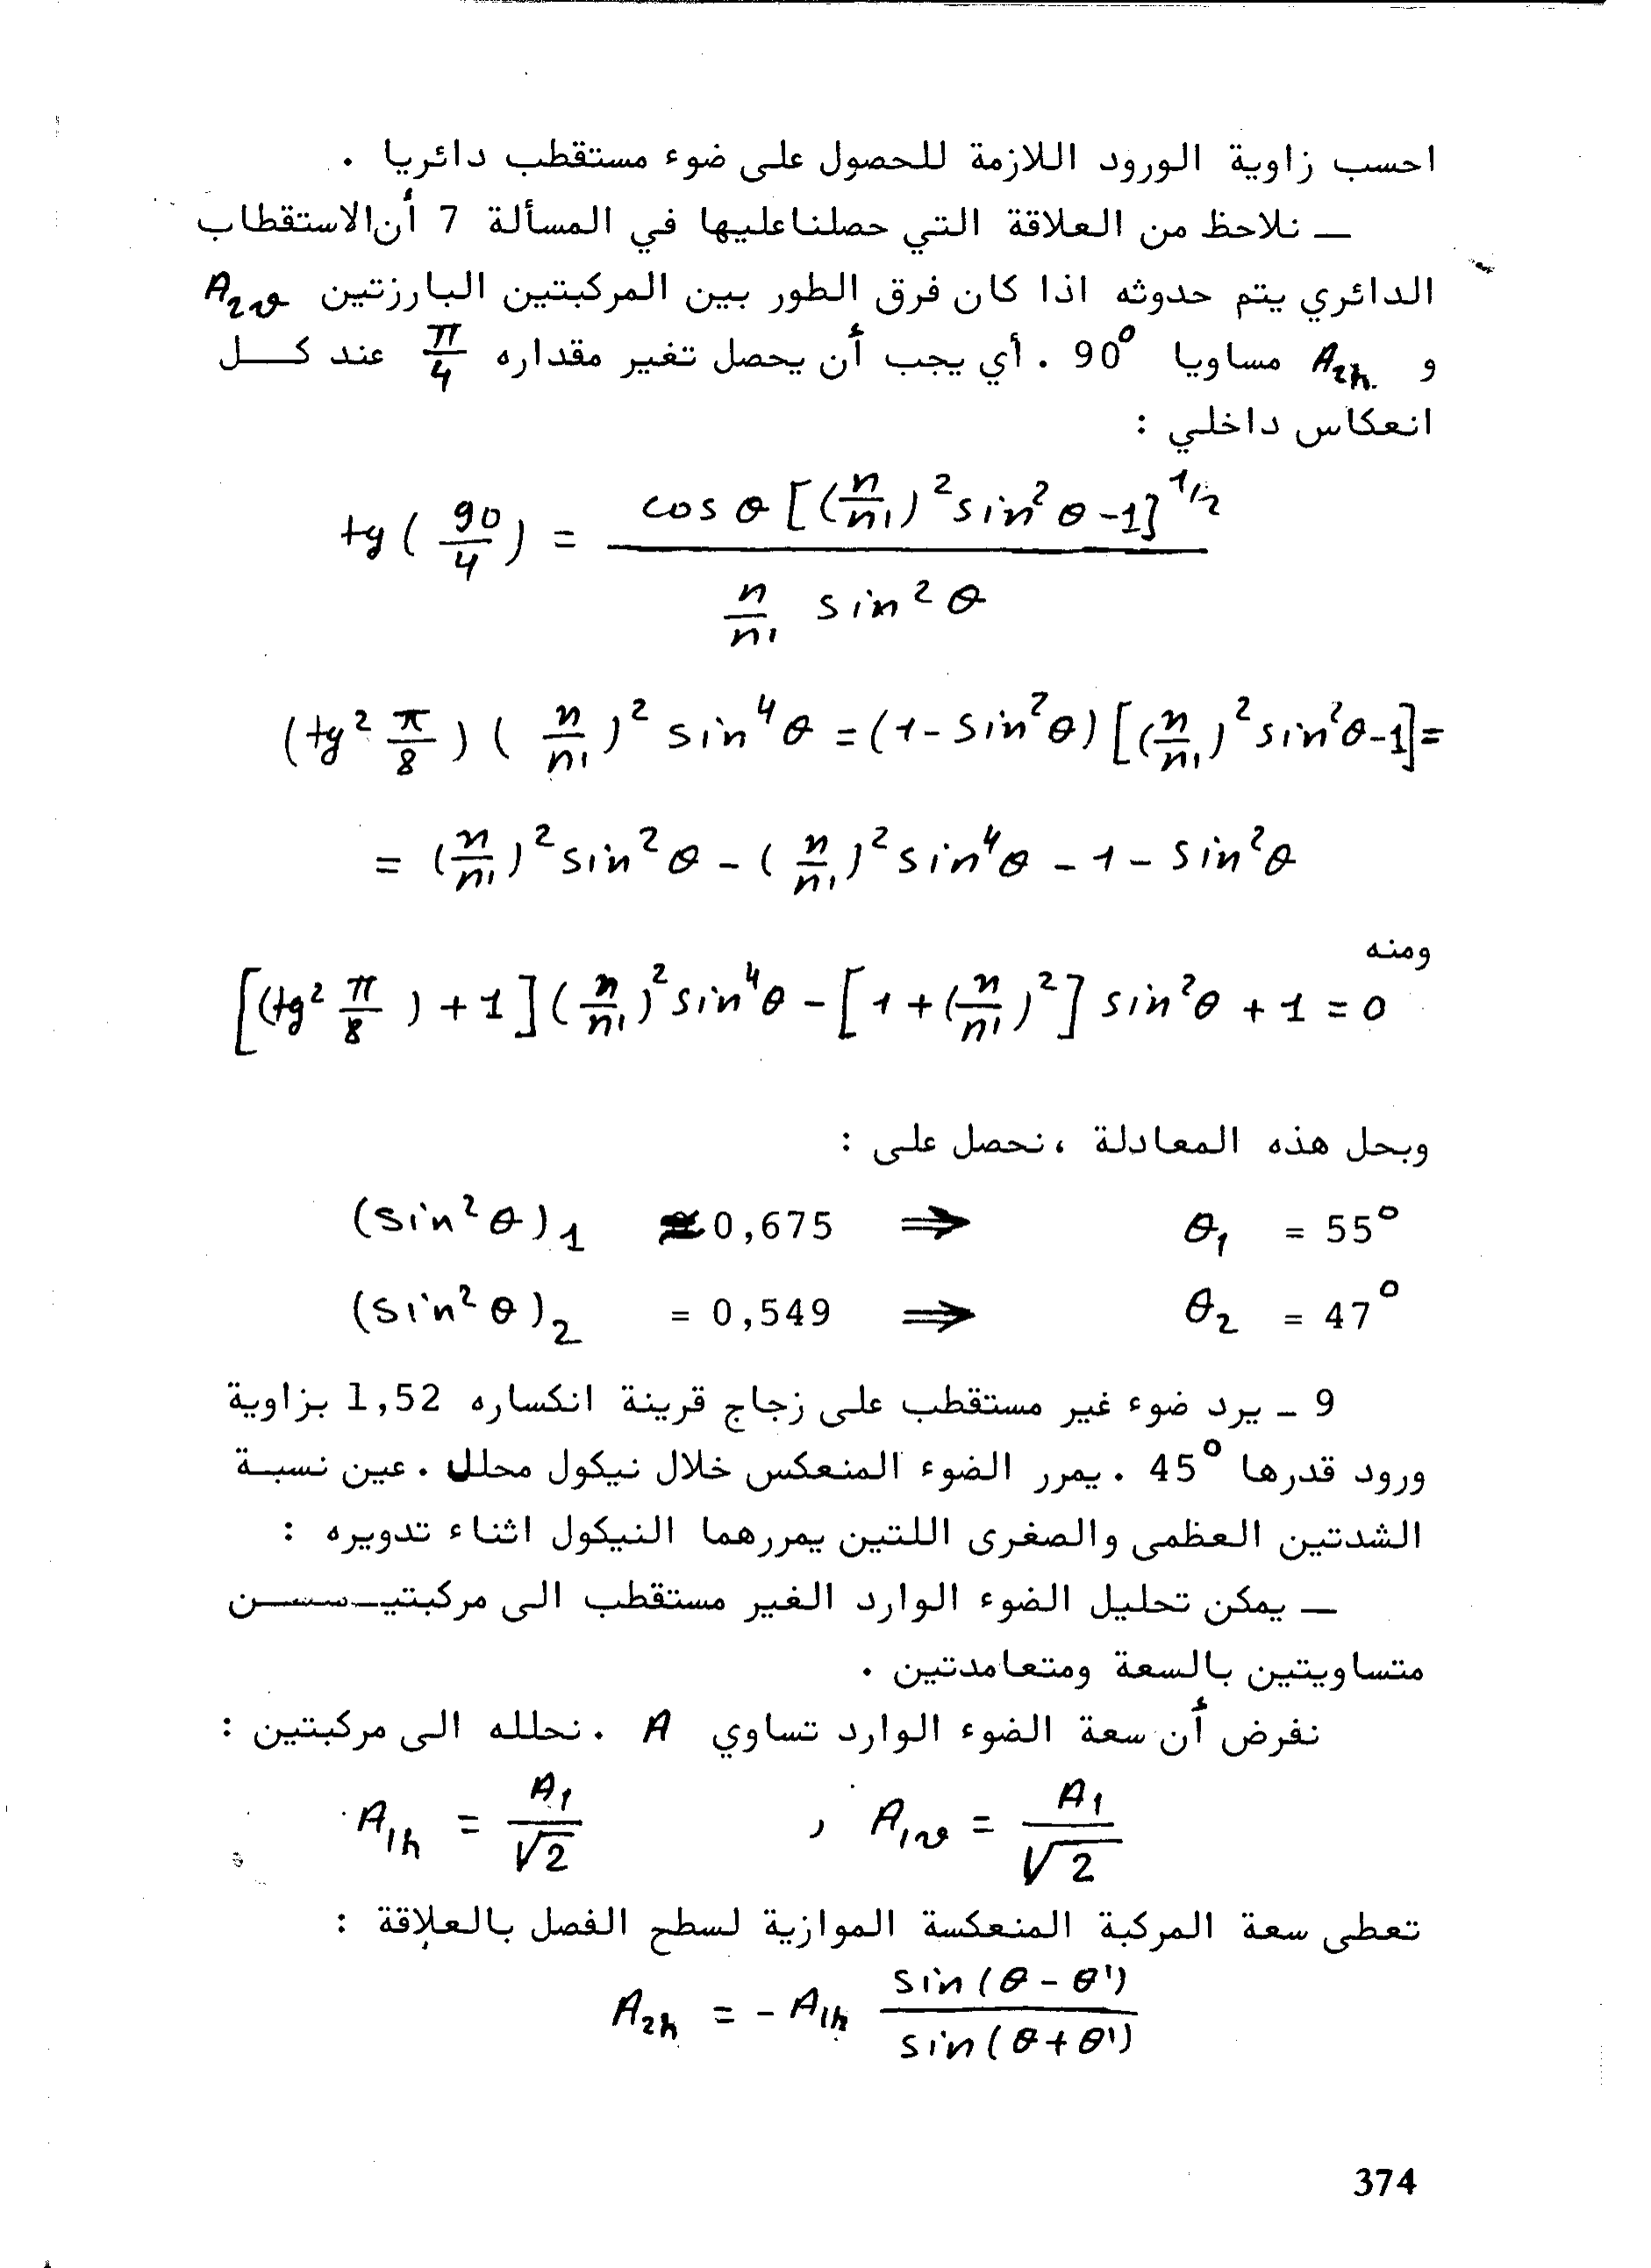 احسب زاوية الورود اللازمة للحصول على ضوء مستقطب دائريا .
— نلاحظ من العلاقة التي حصلناعليها في المسألة 7 أن الاستقطاب
الدائري يتم حدوثه اذا كان فرق الطور بين المركبتين البارزتين A₂ᵥ
و A₂ₕ مساويا 90° . أي يجب أن يحصل تغير مقداره π/4 عند كــل
انعكاس داخلي :
tg ( 90/4 ) = cos θ [(n/n')² sin² θ -1]^1/2 / (n/n' sin² θ)
(tg² π/8 ) ( n/n' )² sin⁴ θ = (1- sin² θ) [(n/n')² sin² θ -1] =
= (n/n')² sin² θ - ( n/n' )² sin⁴ θ - 1 - sin² θ
ومنه
[(tg² π/8 ) + 1 ] ( n/n' )² sin⁴ θ - [ 1 + (n/n')² ] sin² θ + 1 = 0
وبحل هذه المعادلة ، نحصل على :
(sin² θ)₁ ≃ 0,675 ⇒ θ₁ = 55°
(sin² θ)₂ = 0,549 ⇒ θ₂ = 47°
9 ـ يرد ضوء غير مستقطب على زجاج قرينة انكساره 1,52 بزاوية
ورود قدرها 45° . يمرر الضوء المنعكس خلال نيكول محلل . عين نسبـة
الشدتين العظمى والصغرى اللتين يمررهما النيكول اثناء تدويره :
— يمكن تحليل الضوء الوارد الغير مستقطب الى مركبتيـــن
متساويتين بالسعة ومتعامدتين .
نفرض أن سعة الضوء الوارد تساوي A . نحلله الى مركبتين :
A₁ₕ = A₁/√2 , A₁ᵥ = A₁/√2
تعطى سعة المركبة المنعكسة الموازية لسطح الفصل بالعلاقة :
A₂ₕ = - A₁ₕ sin (θ - θ') / sin (θ + θ')
374